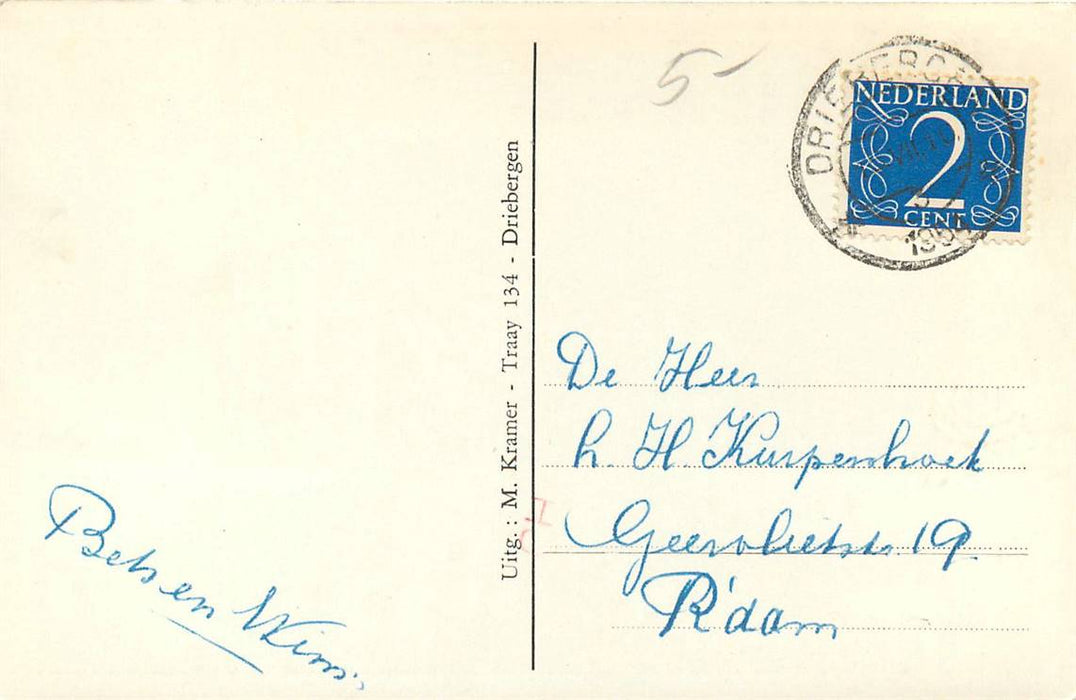 5-
DRIEBERGEN
NEDERLAND
2
CENT
Uitg.: M. Kramer - Traay 134 - Driebergen
De Heer
h. H Kurpershoek
Geervlietstr. 19.
R'dam
Bets en Wim.